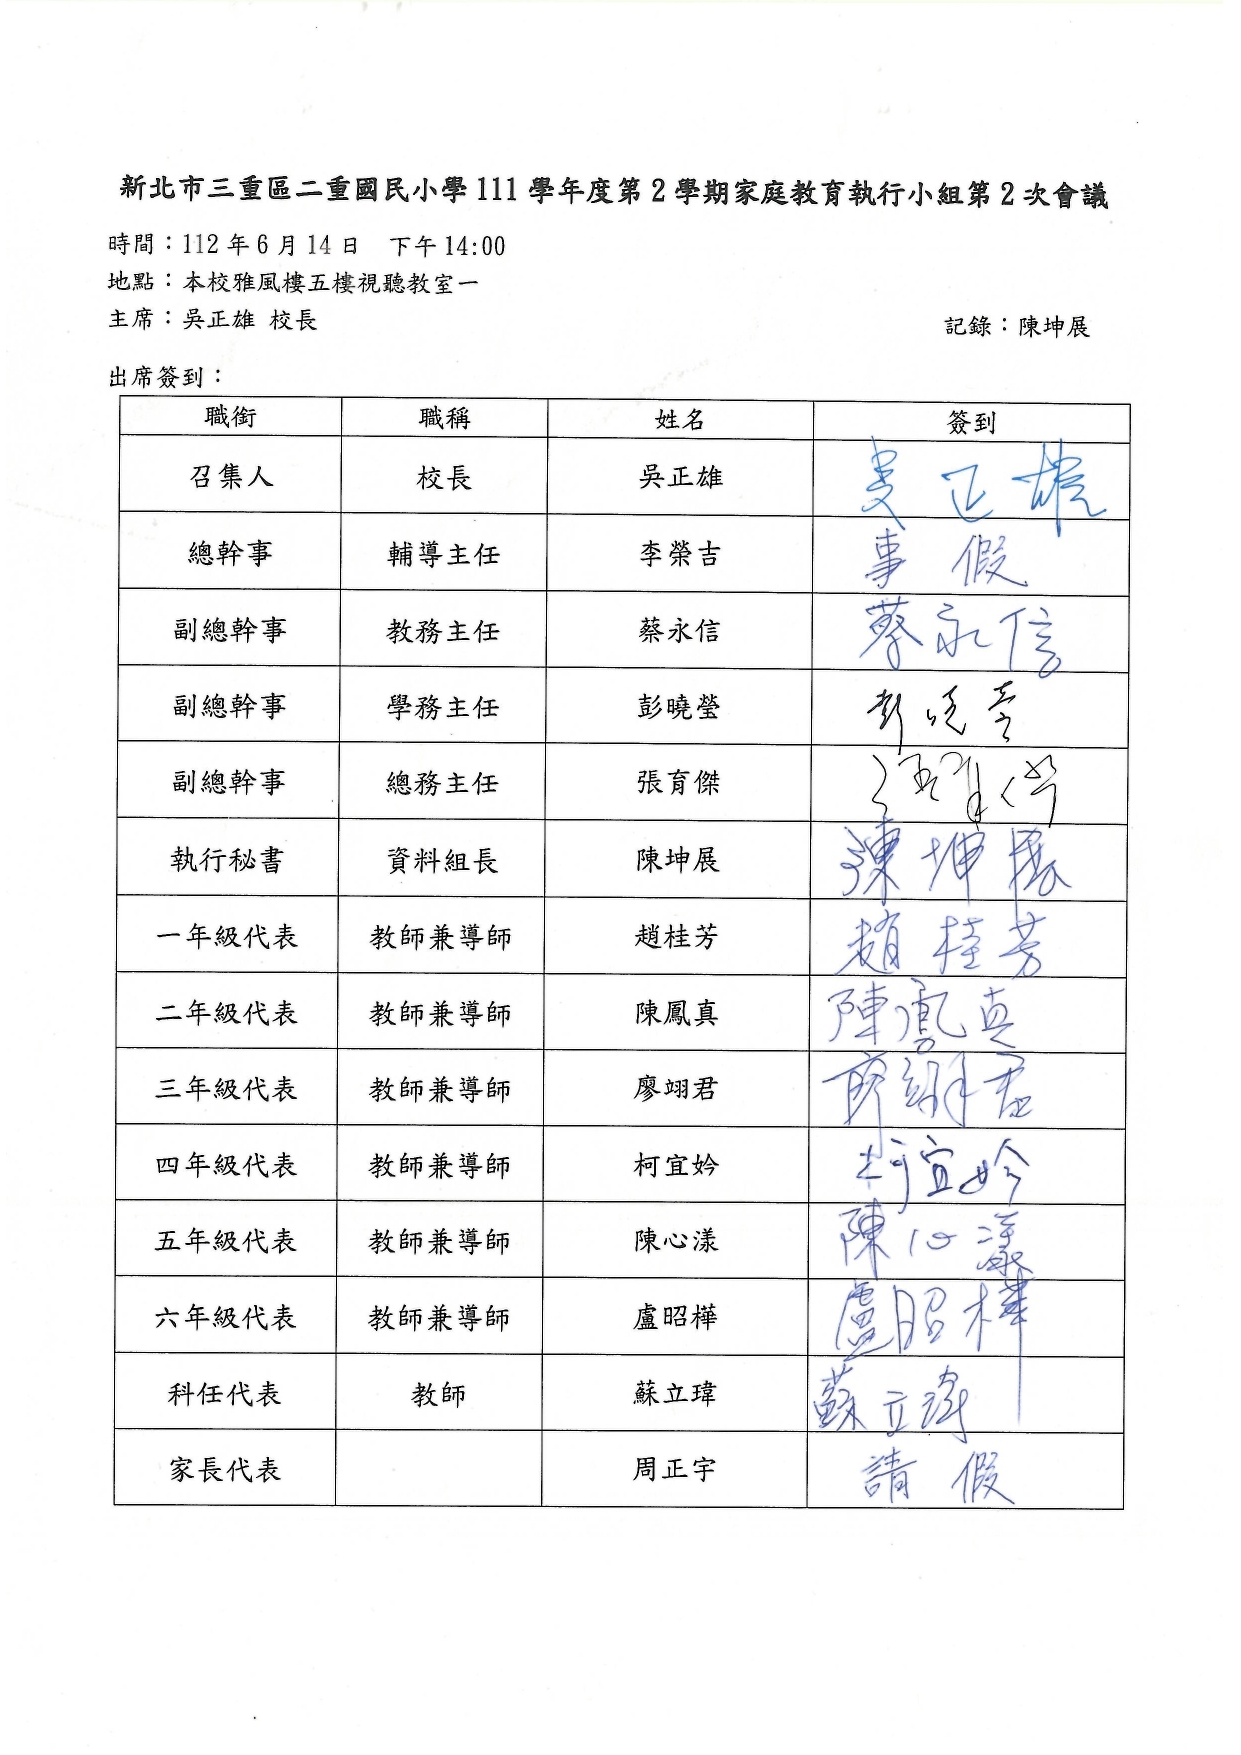 新北市三重區二重國民小學111學年度第2學期家庭教育執行小組第2次會議
時間：112年6月14日 下午14:00
地點：本校雅風樓五樓視聽教室一
主席：吳正雄 校長
記錄：陳坤展
出席簽到：
職銜 職稱 姓名 簽到
召集人 校長 吳正雄 吳正雄
總幹事 輔導主任 李榮吉 事假
副總幹事 教務主任 蔡永信 蔡永信
副總幹事 學務主任 彭曉瑩 彭曉瑩
副總幹事 總務主任 張育傑 張育傑
執行秘書 資料組長 陳坤展 陳坤展
一年級代表 教師兼導師 趙桂芳 趙桂芳
二年級代表 教師兼導師 陳鳳真 陳鳳真
三年級代表 教師兼導師 廖翊君 廖翊君
四年級代表 教師兼導師 柯宜妗 柯宜妗
五年級代表 教師兼導師 陳心漾 陳心漾
六年級代表 教師兼導師 盧昭樺 盧昭樺
科任代表 教師 蘇立瑋 蘇立瑋
家長代表 周正宇 請假